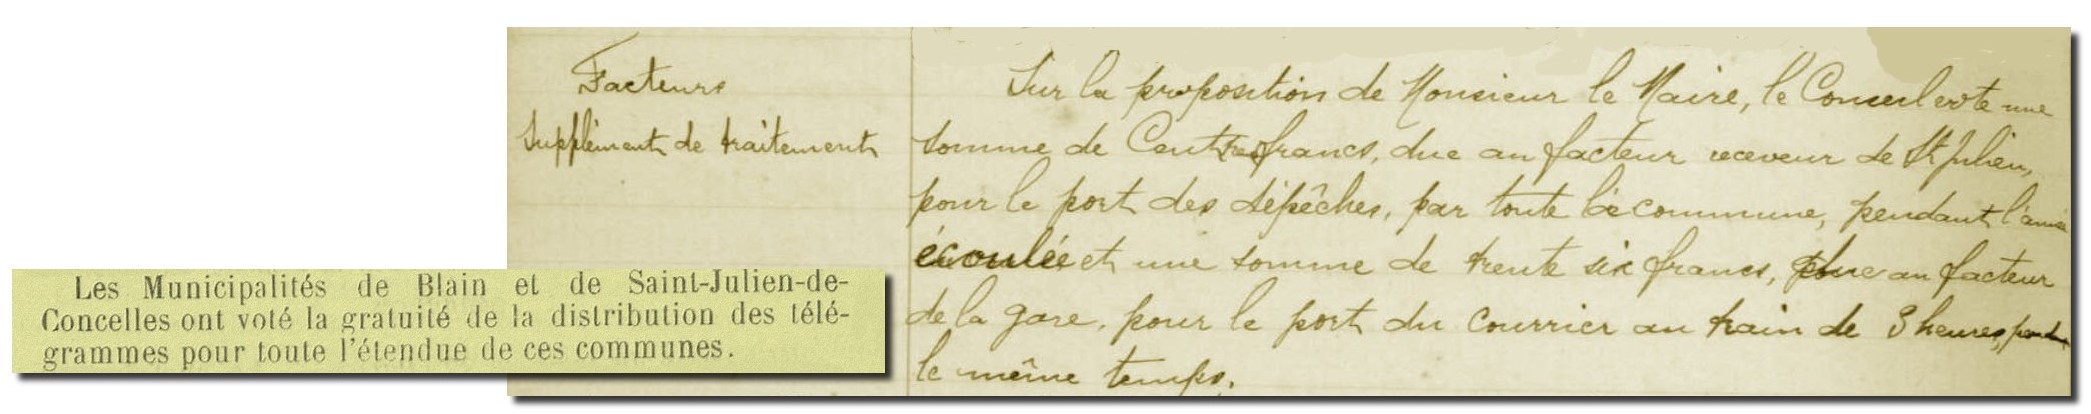 Facteurs
Supplément de traitement
Sur la proposition de Monsieur le Maire, le Conseil vote une
somme de Cent francs, due au facteur receveur de St Julien,
pour le port des dépêches, par toute la commune, pendant l'année
écoulée et une somme de trente six francs, due au facteur
de la gare, pour le port du courrier au train de 3 heures, pendant
le même temps.
Les Municipalités de Blain et de Saint-Julien-de-
Concelles ont voté la gratuité de la distribution des télé-
grammes pour toute l'étendue de ces communes.